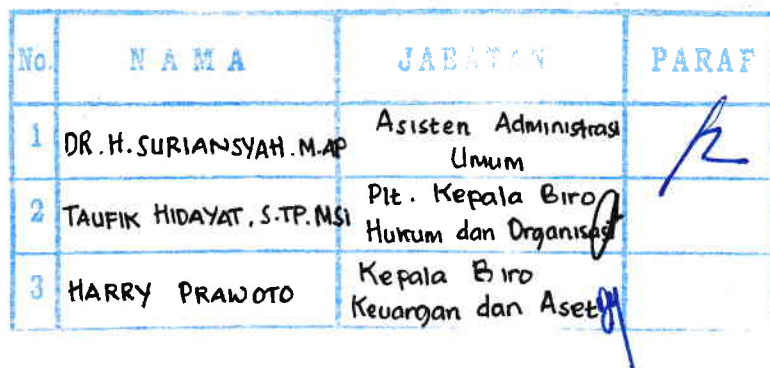 No. NAMA JABATAN PARAF
1 DR. H. SURIANSYAH. M.AP Asisten Administrasi
Umum
2 TAUFIK HIDAYAT, S.TP. MSi Plt. Kepala Biro
Hukum dan Organisasi
3 HARRY PRAWOTO Kepala Biro
Keuangan dan Aset